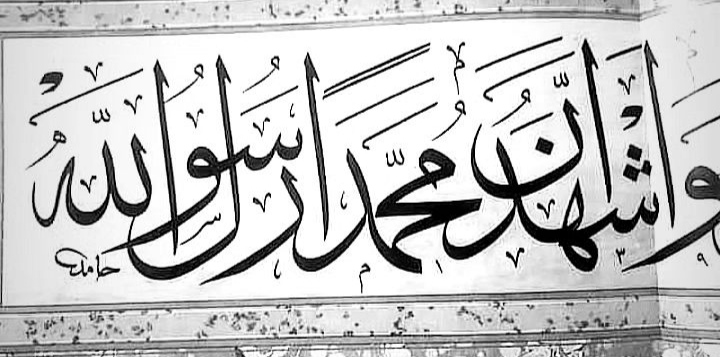 واشهد ان محمدا رسول الله
حامد